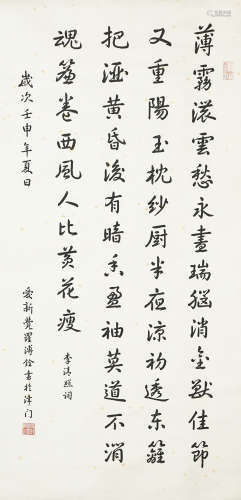 薄霧濃雲愁永晝瑞腦消金獸佳節
又重陽玉枕紗厨半夜涼初透東籬
把酒黃昏後有暗香盈袖莫道不消
魂簾卷西風人比黃花瘦
李清照詞
歲次壬申年夏日
愛新覺羅溥佺書於津门